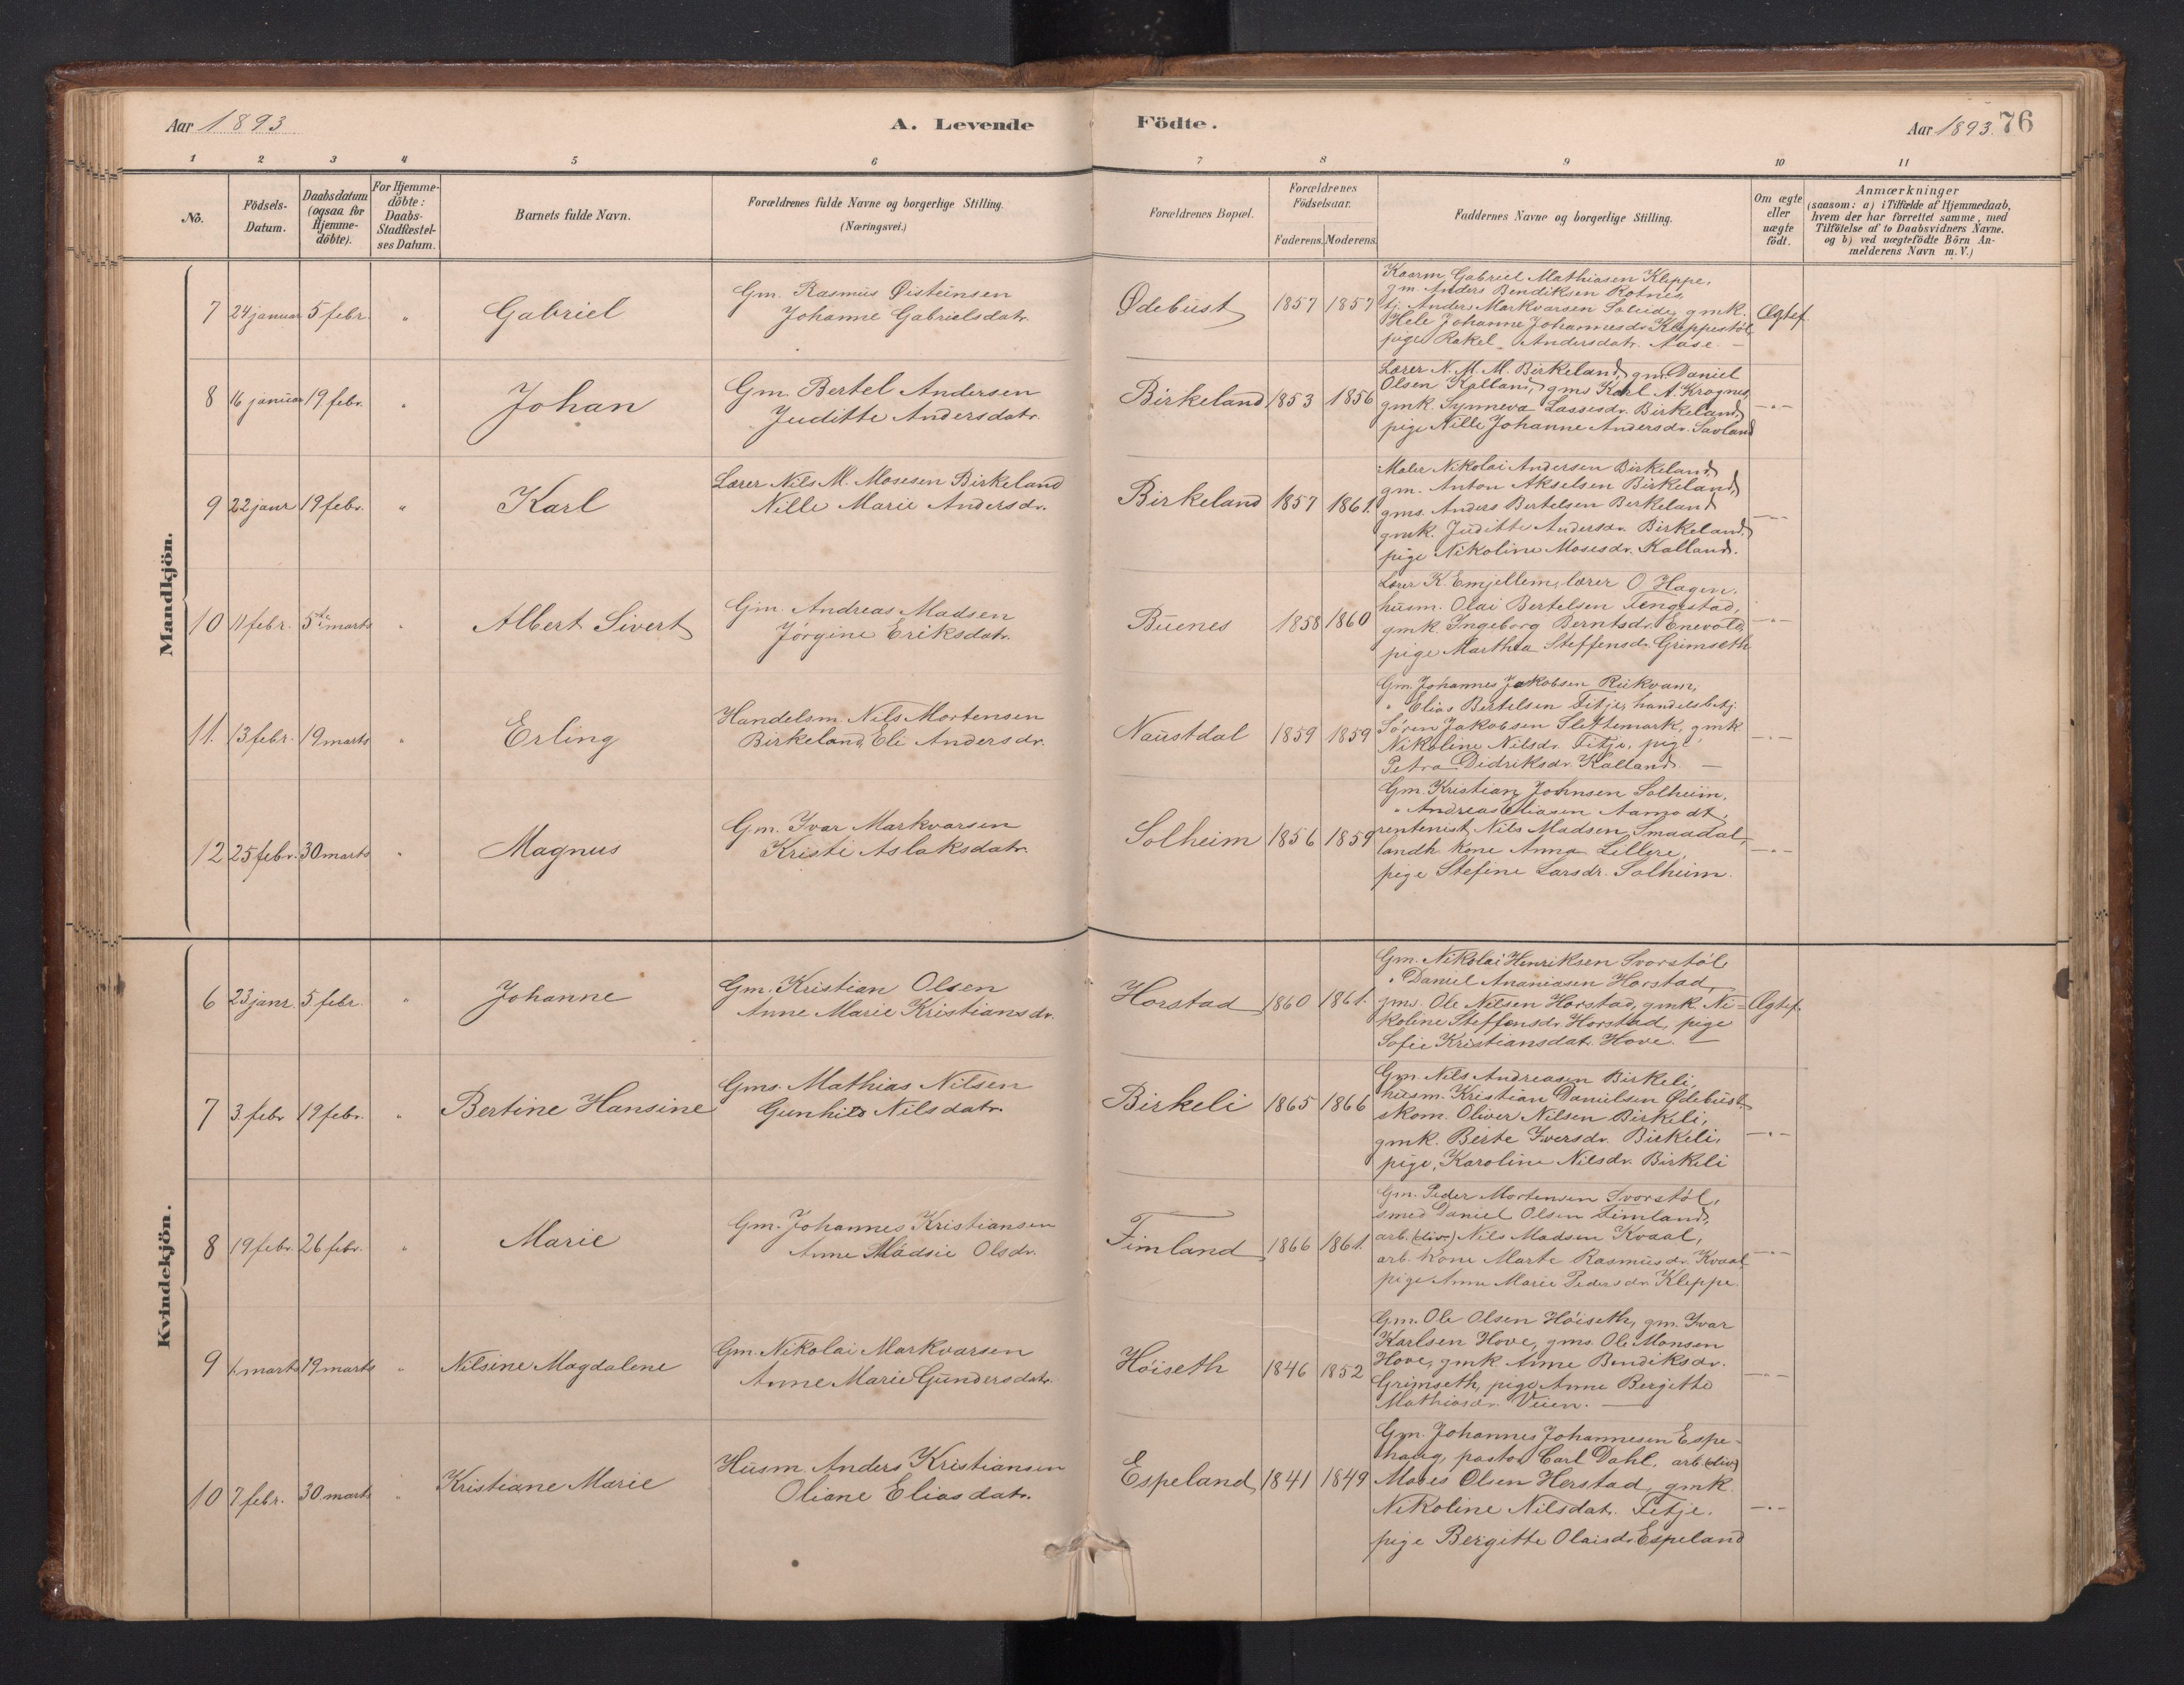 Aar 1893
A. Levende Födte.
Aar 1893. 76
1 2 3 4 5 6 7 8 9 10 11
No.
Födsels-Datum.
Daabsdatum (ogsaa for Hjemme-döbte).
For Hjemme-döbte: Daabs-Stadfæstel-ses Datum.
Barnets fulde Navn.
Forældrenes fulde Navne og borgerlige Stilling.
(Næringsvei.)
Forældrenes Bopæl.
Forældrenes Födselsaar.
Faderens. Moderens.
Faddernes Navne og borgerlige Stilling.
Om ægte eller uægte födt.
Anmærkninger
(saasom: a) i Tilfælde af Hjemmedaab,
hvem der har forrettet samme, med
Tilföielse af to Daabsvidners Navne.
og b) ved uægtefödte Börn An-
melderens Navn m. V.)
Mandkjön.
7 24 januar 5 febr. " Gabriel
Gm. Rasmus Øisteinsen
Johanne Gabrielsdatr.
Ødebust 1857 1857
Kaarm. Gabriel Mathiasen Kleppe,
gm. Anders Bendiksen Rotnes,
tj. Anders Markvarsen Soleide, gmk.
Hele Johanne Johannesdr. Kleppestöl
pige Rakel Andersdatr. Aase. —
Ægtef.
8 16 januar 19 febr. " Johan
Gm. Bertel Andersen
Juditte Andersdatr.
Birkeland 1853 1856
Lærer N. M. M. Birkeland, gm. Daniel
Olsen Kalland, gms. Karl A. Krognes,
gmk. Synneva Lassesdr. Birkeland,
pige Nille Johanne Andersdr. Savland
—"—
9 22 janr 19 febr. " Karl
Lærer Nils M. Mosesen Birkeland
Nille Marie Andersdr.
Birkeland 1857 1861.
Maler Nikolai Andersen Birkeland,
gm. Anton Akselsen Birkeland,
gms. Anders Bertelsen Birkeland
gmk. Juditte Andersdr. Birkeland,
pige Nikoline Mosesdr. Kalland.
—"—
10 11 febr. 5te marts " Albert Sivert
Gm. Andreas Madsen
Jørgine Eriksdatr.
Buenes 1858 1860
Lærer K. Emjellem, lærer O. Hagen,
husm. Olai Bertelsen Fengestad,
gmk. Ingeborg Berntsdr. Enevold,
pige Marthea Steffensdr. Grimseth
—"—
11. 13 febr. 19 marts " Erling
Handelsm. Nils Mortensen
Birkeland, Eli Andersdr.
Naustdal 1859 1859
Gm. Johannes Jakobsen Rukvam,
" Elias Bertelsen Fitje, handelsbetj.
Søren Jakobsen Slettemark, gmk
Nikoline Nilsdr. Fitje, pige
Petra Didriksdr. Kalland. —
—"—
12 25 febr. 30 marts " Magnus
Gm. Ivar Markvarsen
Kristi Aslaksdatr.
Solheim 1856 1859
Gm. Kristian Johnsen Solheim,
" Andreas Eliasen Aamodt,
rentenist Nils Madsen Smaadal,
landh. kone Anna Lillere,
pige Stefine Larsdr. Solheim.
—"—
Kvindekjön.
6 23 janr. 5 febr. " Johanne
Gm. Kristian Olsen
Anne Marie Kristiansdr.
Horstad 1860 1861.
Gm. Nikolai Henriksen Svorstöl
" Daniel Ananiasen Horstad,
gms. Ole Nilsen Horstad, gmk. Ni=
koline Steffensdr. Horstad, pige
Sofie Kristiansdat. Hove. —
Ægtef.
7 3 febr 19 febr. " Bertine Hansine
Gms. Mathias Nilsen
Gunhild Nilsdatr.
Birkeli 1865 1866
Gm. Nils Andreasen Birkeli,
husm. Kristian Danielsen Ødebust
skom. Oliver Nilsen Birkeli,
gmk. Berte Iversdr. Birkeli,
pige, Karoline Nilsdr. Birkeli
—"—
8 19 febr. 26 febr. " Marie
Gm. Johannes Kristiansen
Anne Madsie Olsdr.
Fimland 1866 1861.
Gm. Peder Mortensen Svorstöl,
smed Daniel Olsen Fimland,
arb. (div.) Nils Madsen Kvaal,
arb. kone Marte Rasmusdr. Kvaal,
pige Anne Marie Pedersdr. Kleppe.
—"—
9 marts 19 marts " Nilsine Magdalene
Gm. Nikolai Markvarsen
Anne Marie Gundersdatr.
Høiseth 1846 1852
Gm. Ole Olsen Høiseth, gm. Ivar
Karlsen Hove, gms. Ole Monsen
Hove, gmk Anne Bendiksdr.
Grimseth, pige Anne Bergitte
Mathiasdr. Veien. —
—"—
10 7 febr. 30 marts " Kristiane Marie
Husm. Anders Kristiansen
Oliane Eliasdatr.
Espeland 1841 1849
Gm. Johannes Johannesen Espe-
haug, pastor Carl Dahl, arb (div)
Moses Olsen Herstad, gmk.
Nikoline Nilsdatr. Fitje.
pige Bergitte Olaisdr. Espeland
—"—